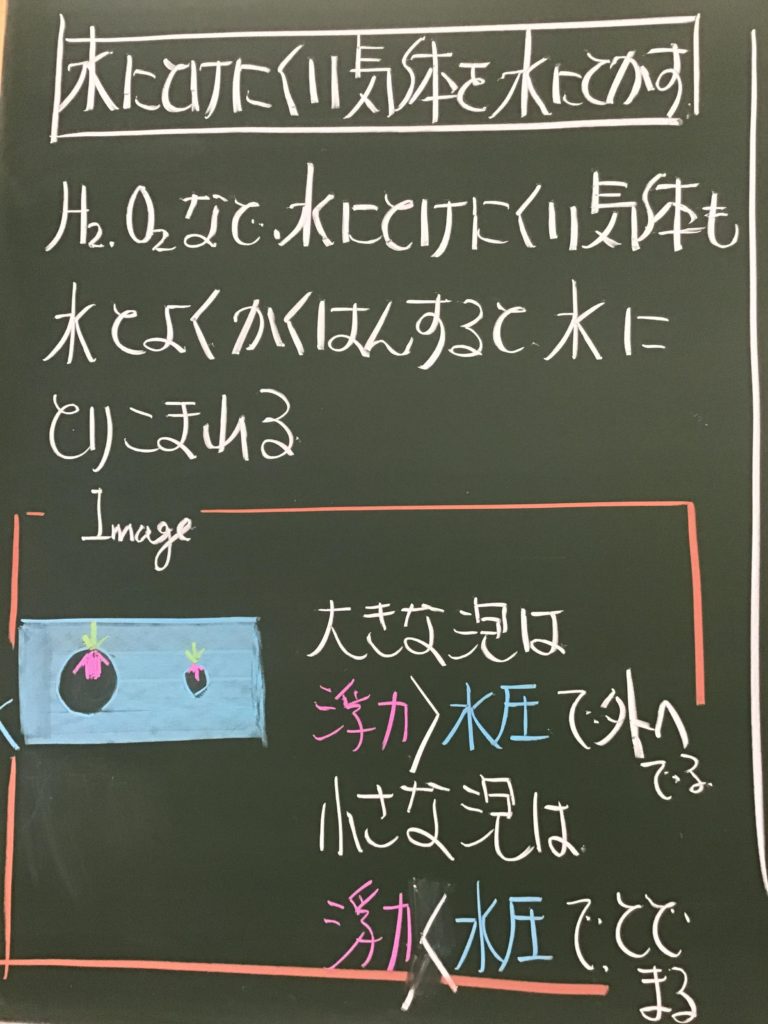 水にとけにくい気体を水にとかす
H₂.O₂など.水にとけにくい気体も
水とよくかくはんすると水に
とりこまれる
Image
大きな泡は
浮力>水圧で外へ
でる
小さな泡は
浮力<水圧で.とど
まる